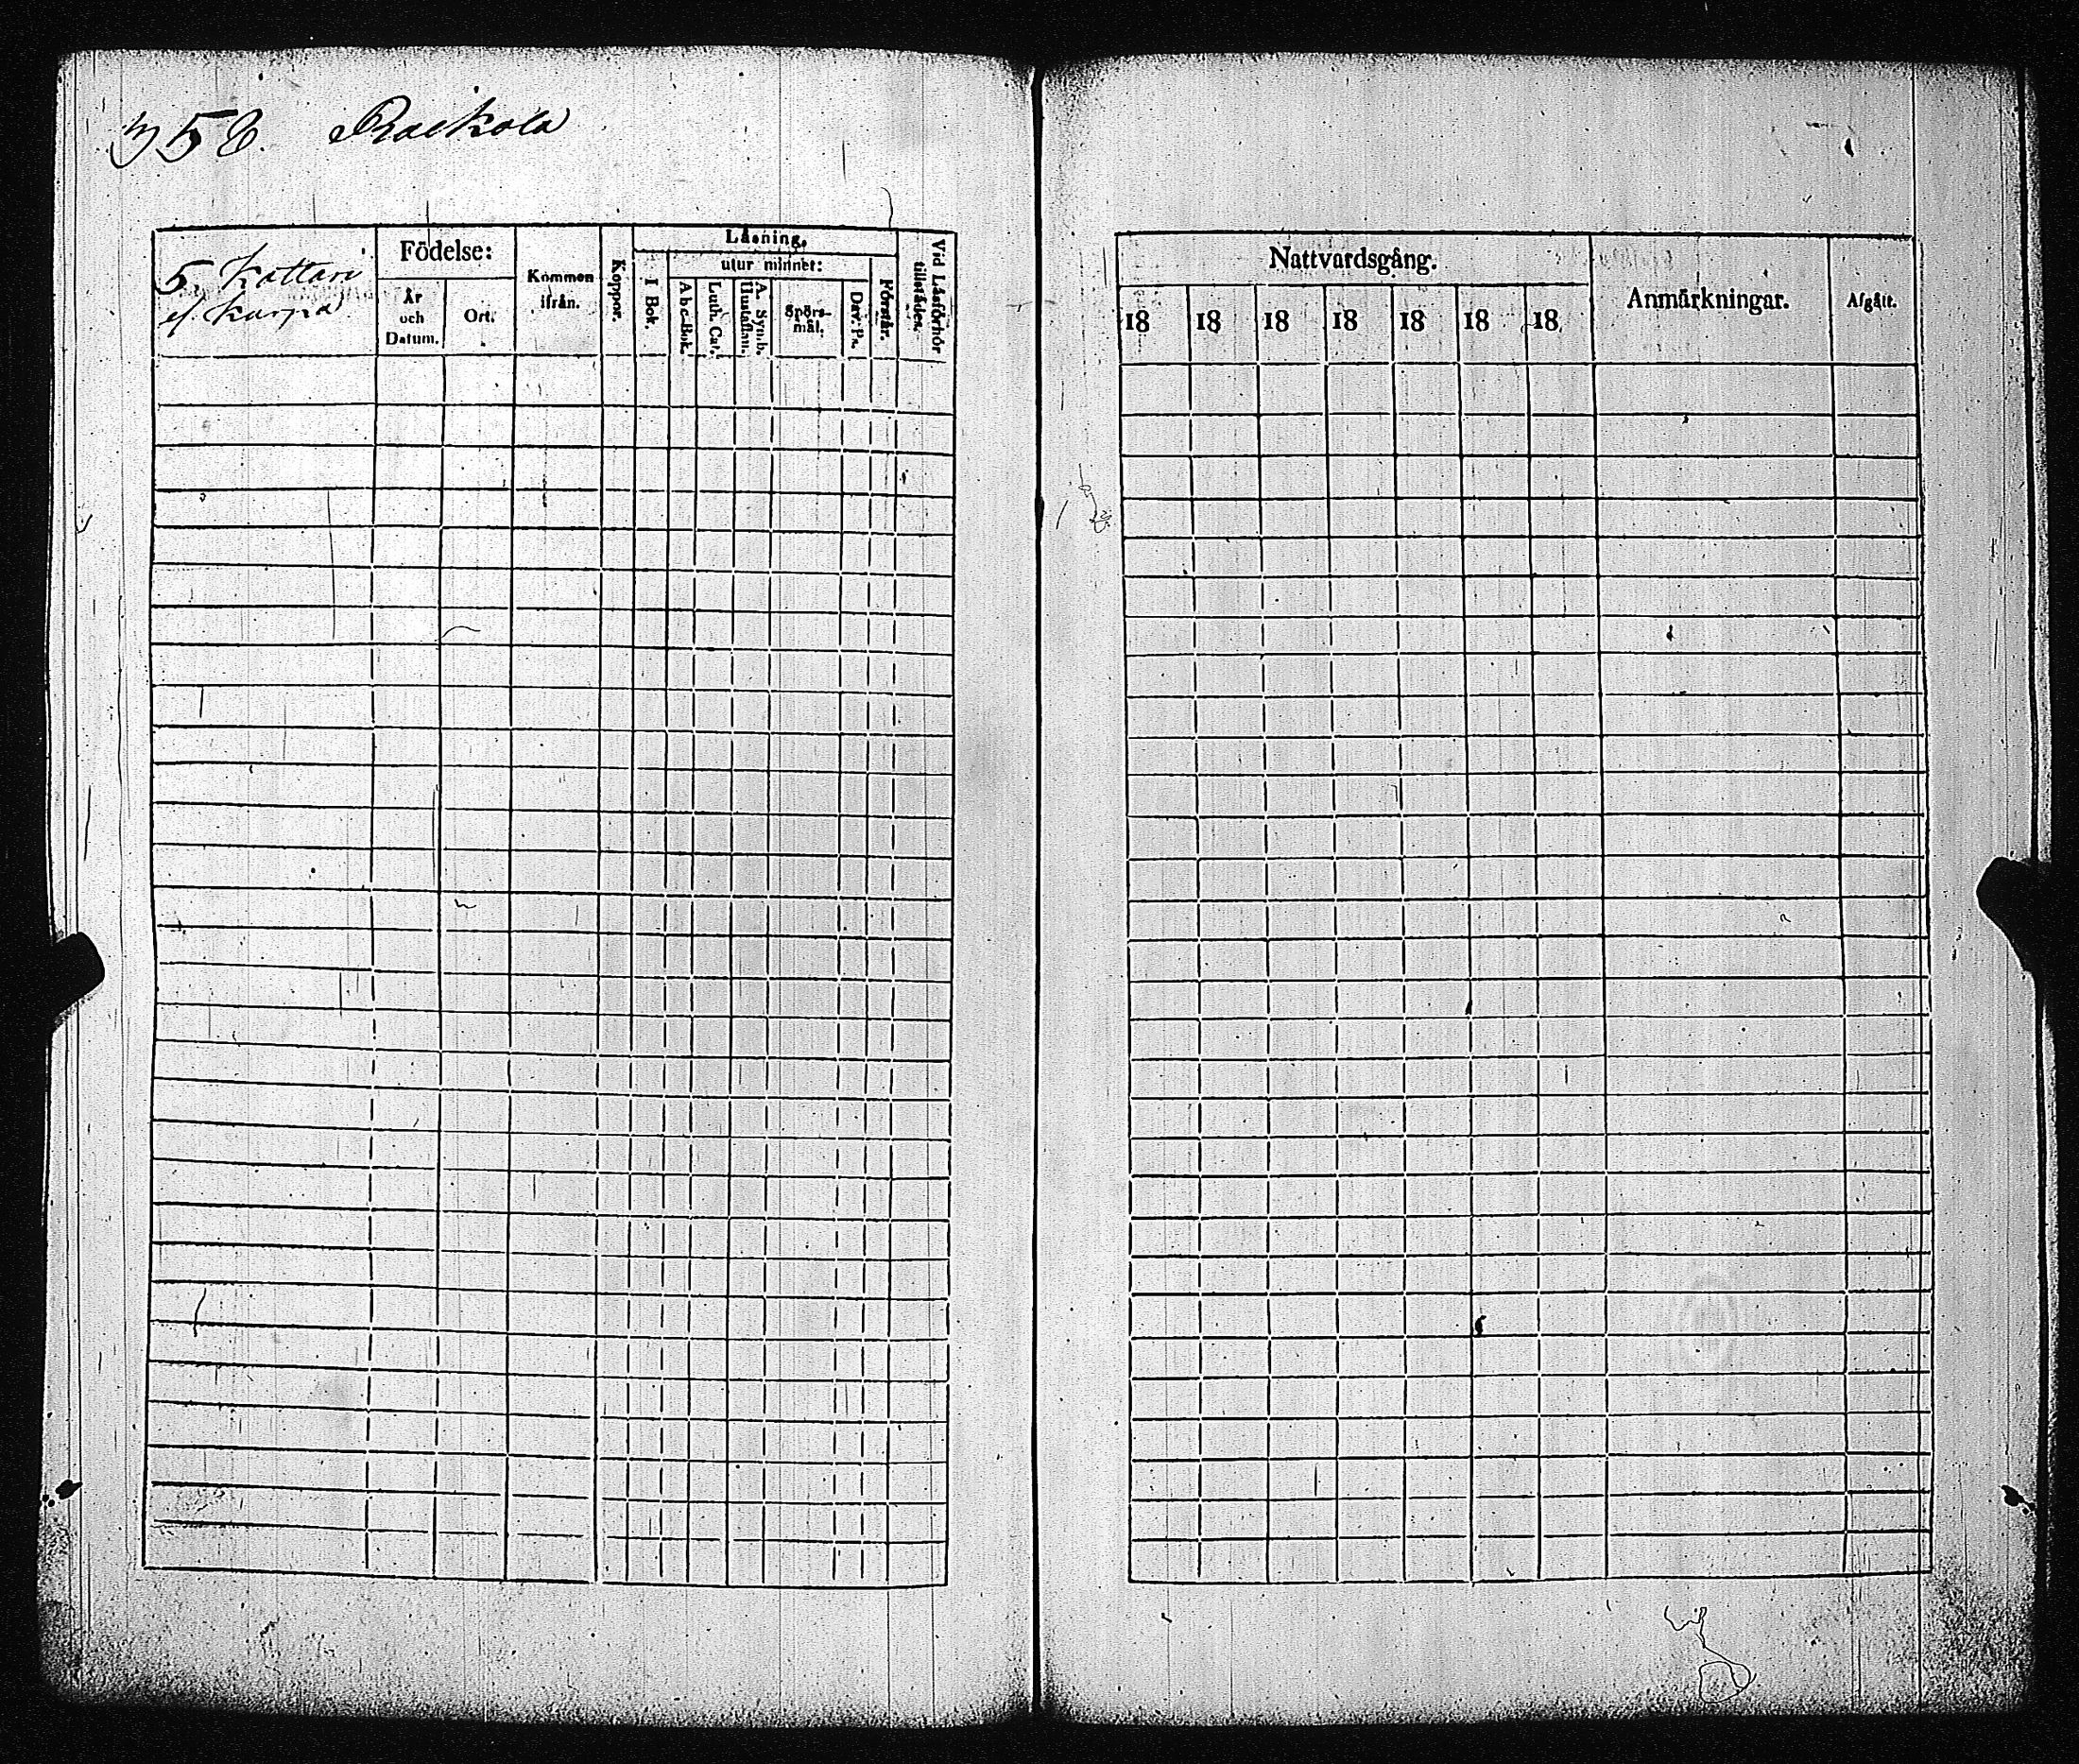 358. Raikola
5. Kattari
el. Kurpa
Födelse:
År och Datum.
Ort.
Kommen ifrån.
Koppor.
Läsning.
I Bok.
utur minnet:
A b c-Bok.
Luth. Cat.
A. Symb. Hustaflan.
Spörs-mål.
Dav. Ps.
Förstår.
Vid Läsförhör tillstädes.
Nattvardsgång.
18 18 18 18 18 18 18
Anmärkningar.
Afgått.